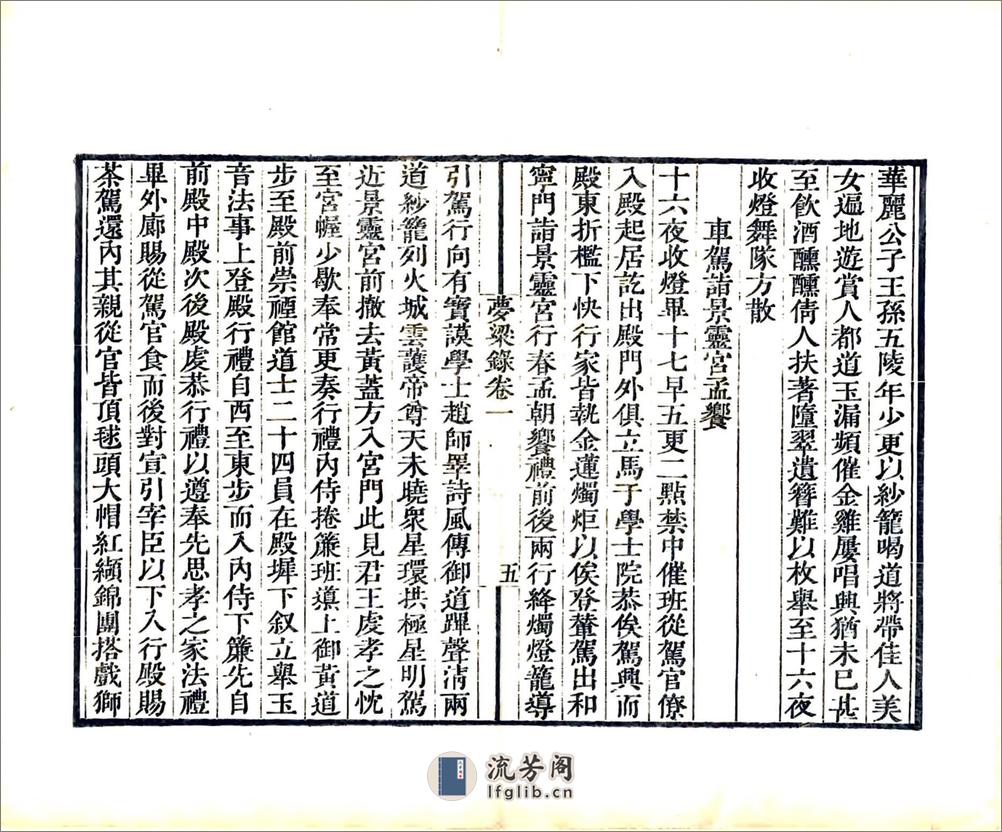 華麗公子王孫五陵年少更以紗籠喝道將帶佳人美
女遍地遊賞人都道玉漏頻催金雞屢唱興猶未已甚
至飲酒醺醺倩人扶著墮翠遺簪難以枚舉至十六夜
收燈舞隊方散
車駕詣景靈宮孟饗
十六夜收燈畢十七早五更二點禁中催班從駕官僚
入殿起居訖出殿門外俱立馬于學士院恭俟駕興而
殿東折檻下快行家皆執金蓮燭炬以俟登輦駕出和
寧門詣景靈宮行春孟朝饗禮前後兩行絳燭燈籠導
夢粱錄卷一
五
引駕行向有寶謨學士趙師𢍰詩風傳御道蹕聲清兩
道紗籠列火城雲護帝尊天未曉衆星環拱極星明駕
近景靈宮前撤去黃蓋方入宮門此見君王虔孝之忱
至宮幄少歇奉常更奏行禮內侍捲簾班導上御黃道
步至殿前崇禋館道士二十四員在殿墀下叙立舉玉
音法事上登殿行禮自西至東步而入內侍下簾先自
前殿中殿次後殿虔恭行禮以遵奉先思孝之家法禮
畢外廊賜從駕官食而後對宣引宰臣以下入行殿賜
茶駕還內其親從官皆頂毬頭大帽紅纈錦團搭戲獅
流芳阁
lfglib.cn